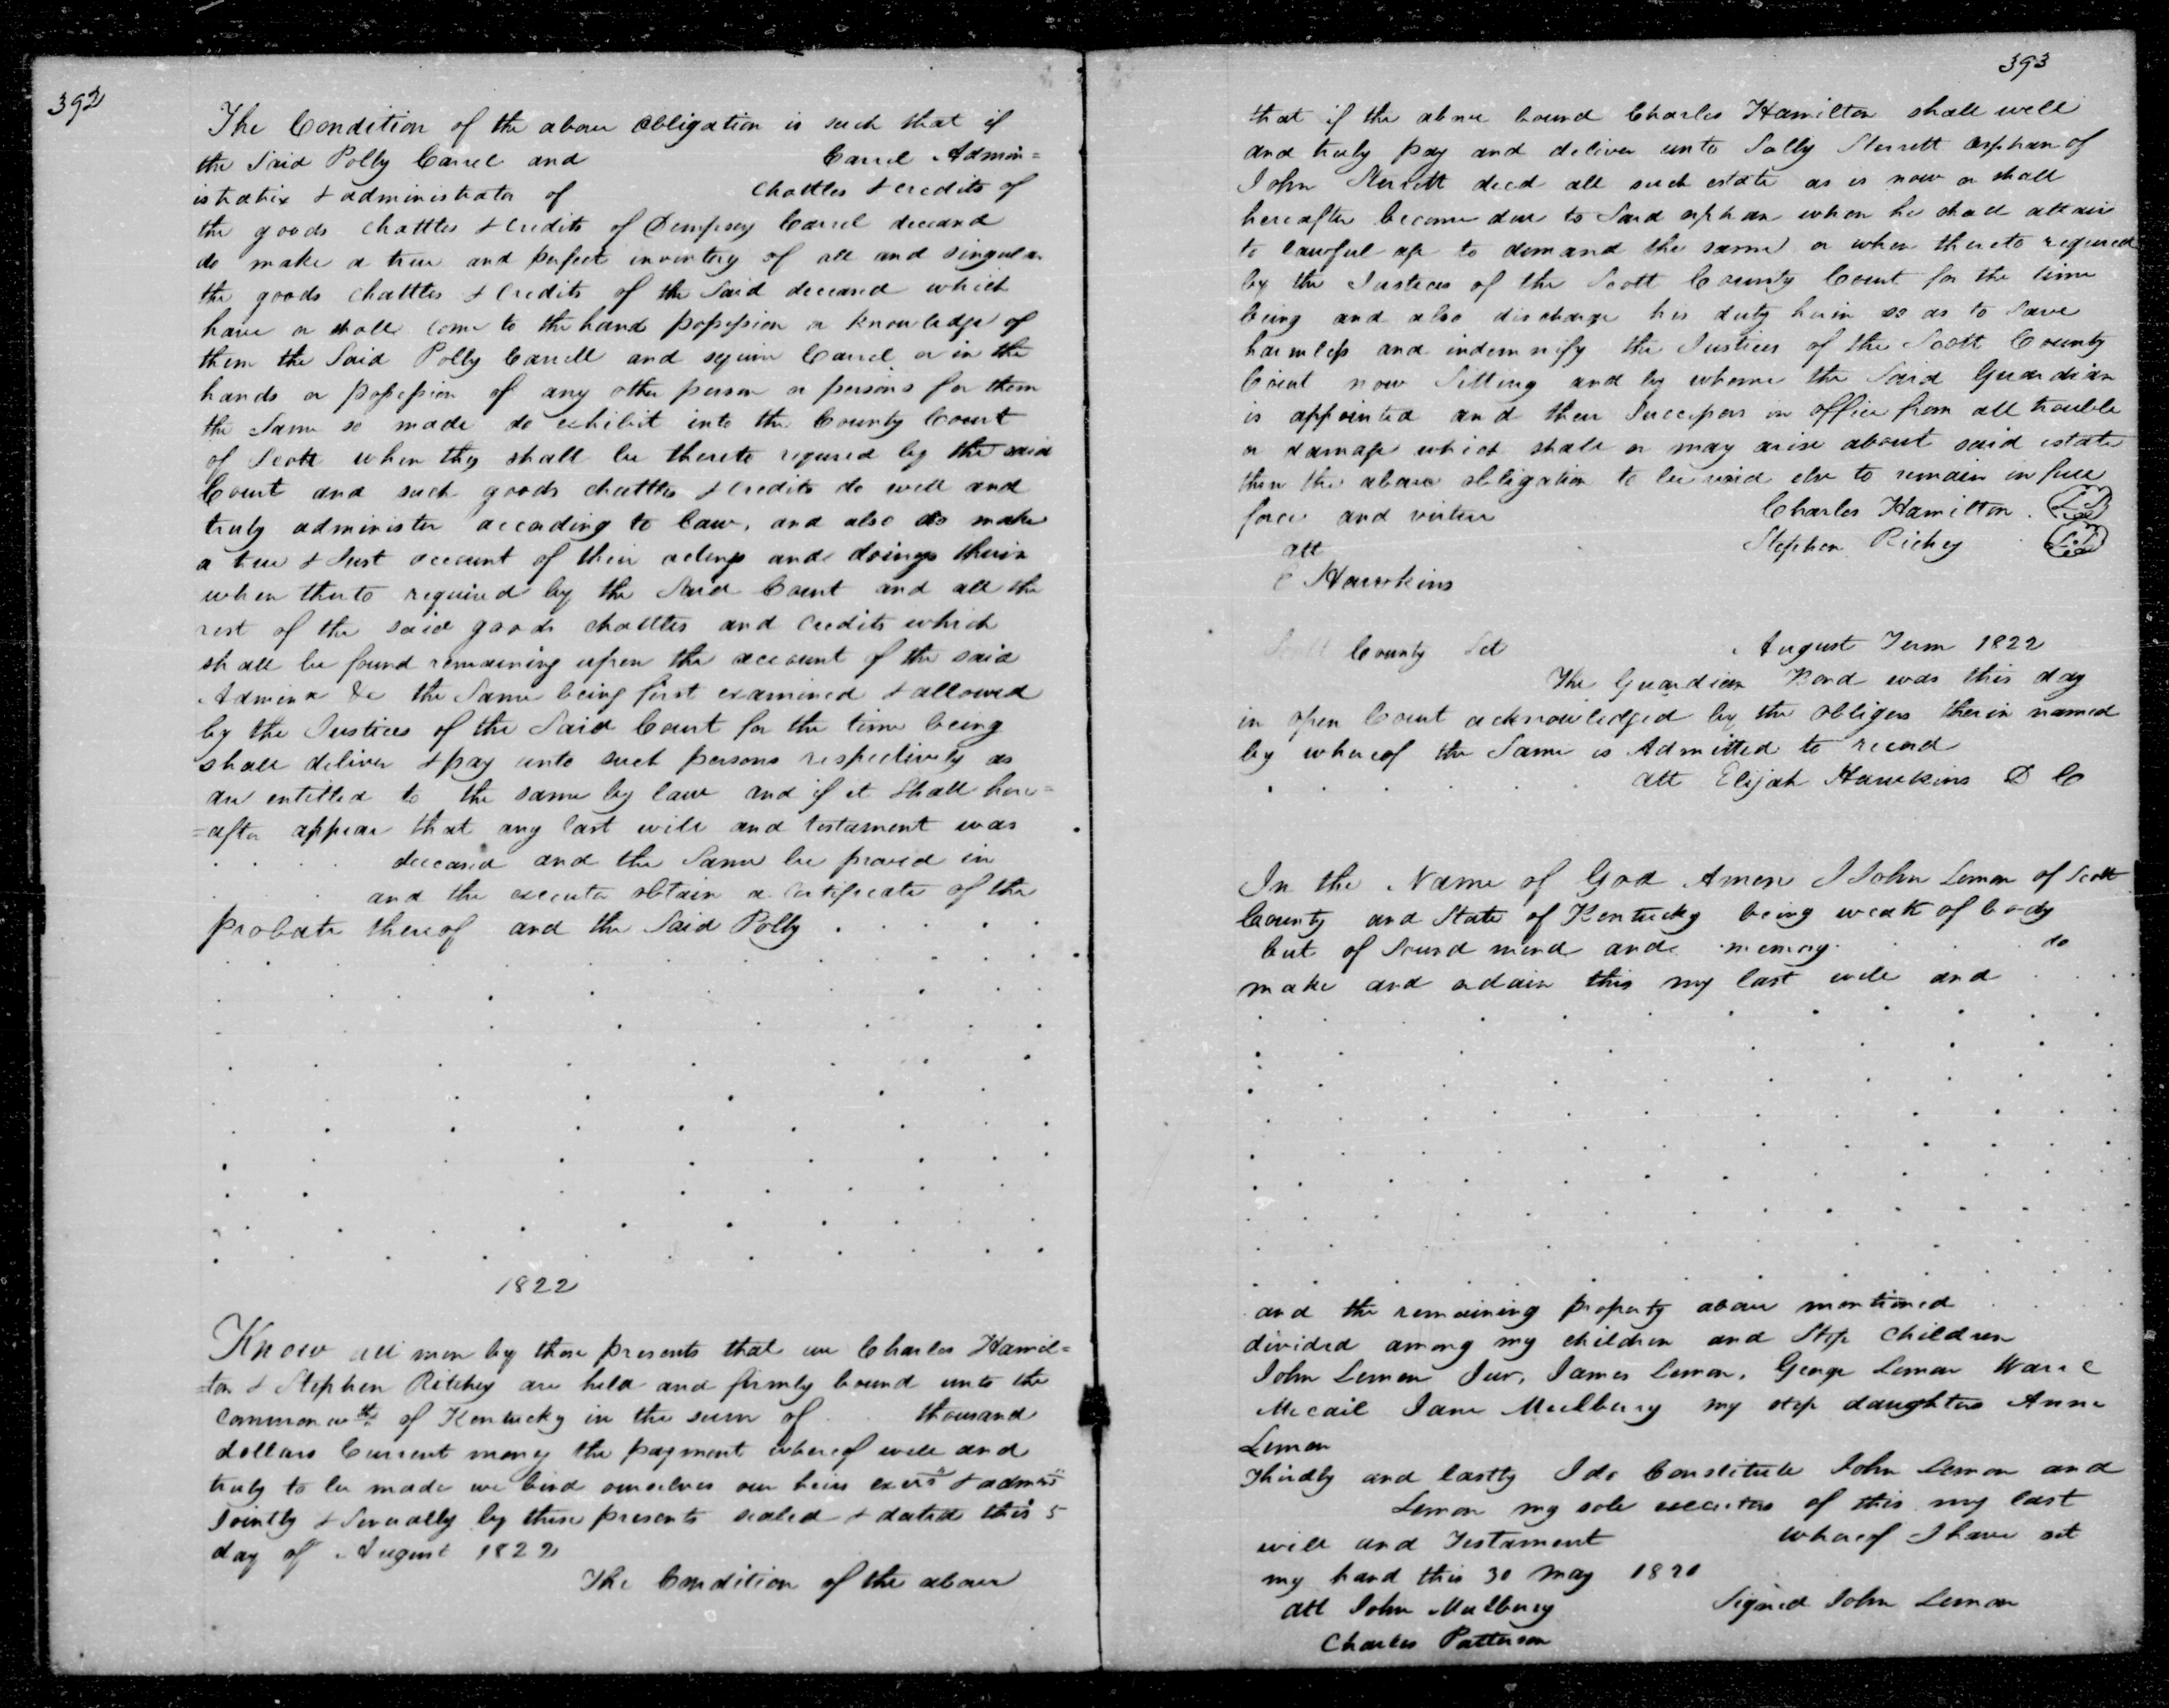 392
The Condition of the above obligation is such that if
the Said Polly Carrel and Carrel Admin=
istratrix & administrator of Chattles & credits of
the goods chattles & credits of Dempsey Carrel deceasd
do make a true and perfect inventory of all and singular
the goods chattles & Credits of the Said deceased which
have or shall come to the hand possession or knowledge of
them the Said Polly Carrell and Carrel or in the
hands or possession of any other person or persons for them
the Same so made do exhibit into the County Court
of Scott when they shall be thereto requred by the said
Court and such goods chattles & credits do well and
truly administer according to law, and also do make
a true & Just account of their actings and doings therin
when therto required by the Said Court and all the
rest of the said goods chattles and credits which
shall be found remaining upon the account of the said
Admin &c the Same being first examined & allowed
by the Justices of the Said Court for the time being
shall deliver & pay unto such persons respectively as
are entitled to the same by law and if it shall here=
=after appear that any last will and testament was
deceased and the Same be proved in
and the executor obtain a certificate of the
probate thereof and the Said Polly
1822
Know all men by these presents that we Charles Hamil=
=ton & Stephen Ritchey are held and firmly bound unto the
commonwth of Kentucky in the sum of thousand
dollars Current money the payment whereof well and
truly to be made we bind ourselves our heirs exers & admrs
Jointly & Severally by these presents sealed & dated this 5
day of August 1822
The Condition of the above
393
that if the above bound Charles Hamilton shall well
and truly pay and deliver unto Sally Sterrett orphan of
John Sterrett decd all such estate as is now or shall
hereafter become due to Said orphan when he shall attain
to lawful age to demand the same or when thereto required
by the Justices of the Scott County Court for the time
being and also discharge his duty herin so as to Save
harmless and indemnify the Justices of the Scott County
Court now Sitting and by whome the Said Guardian
is appointed and their Successors in office from all trouble
or damage which shall or may arise about said estate
then the above obligation to be void else to remain in full
force and virtue Charles Hamilton
att Stephen Richey
C Hawkins
Scott County Sct August Term 1822
The Guardian Bond was this day
in open Court acknowledged by the obligors therin named
by whereof the Same is Admitted to record
att Elijah Hawkins D C
In the Name of God Amen I John Lemon of Scott
County and State of Kentucky being weak of body
but of Sound mind and memory do
make and ordain this my last will and
and the remaining property above mentioned
divided among my children and Step children
John Lemon Junr, James Lemon, George Lemon
Mccail Jane Mulbury my step daughters Anne
Lemon
Thirdly and lastly I do Constitute John Lemon and
Lemon my sole executors of this my last
will and Testament whereof I have set
my hand this 30 May 1820
att John Mulbury Signed John Lemon
Charles Patterson